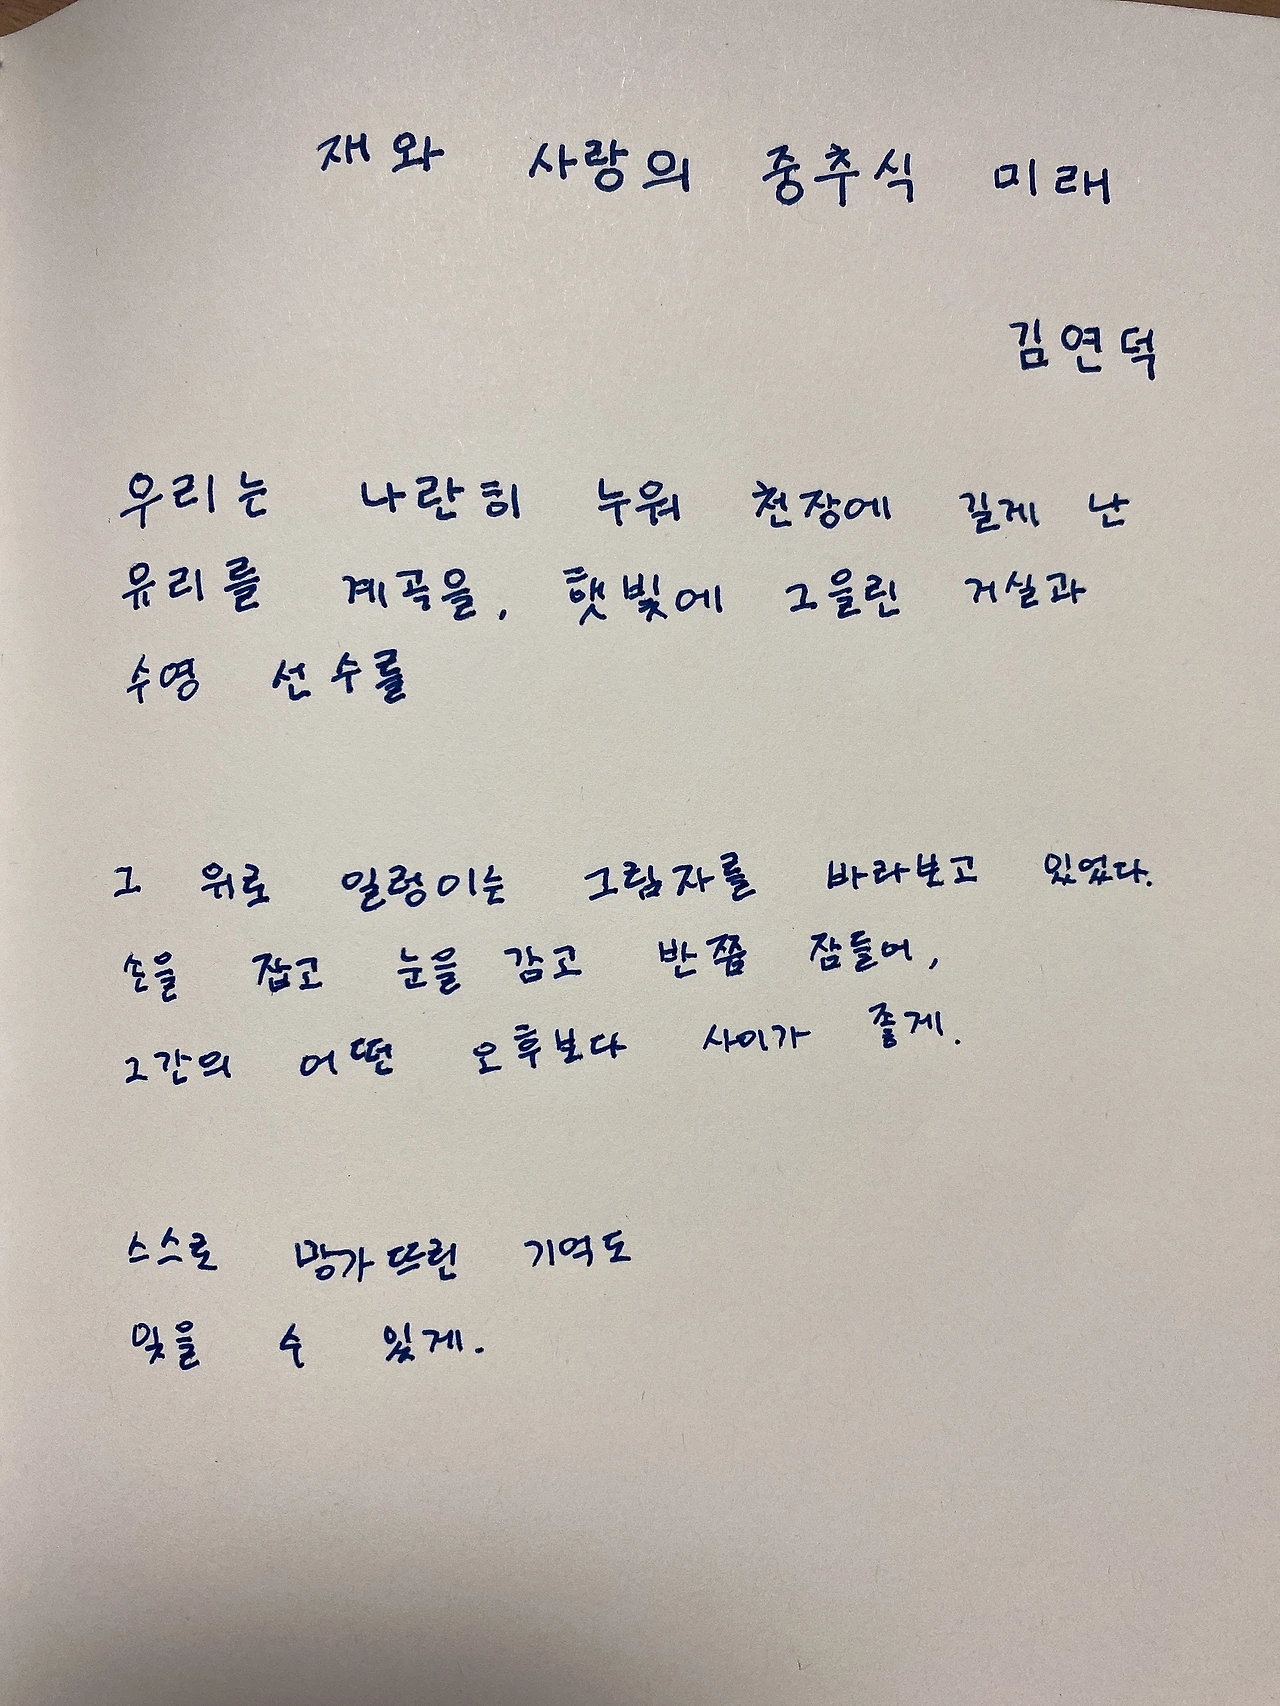 재와 사랑의 중추식 미래
김연덕
우리는 나란히 누워 천장에 길게 난
유리를 계곡을, 햇빛에 그을린 거실과
수영 선수를
그 위로 일렁이는 그림자를 바라보고 있었다.
손을 잡고 눈을 감고 반쯤 잠들어,
그간의 어떤 오후보다 사이가 좋게.
스스로 망가뜨린 기억도
잊을 수 있게.